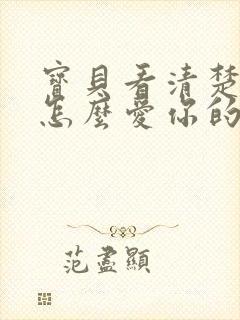 寶貝看清楚
怎麼愛你的
范盡顯